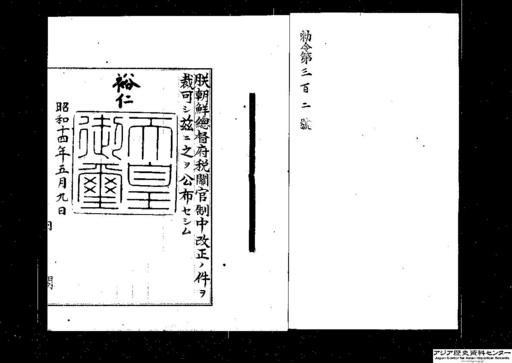 勅令第三百二號
朕朝鮮總督府税關官制中改正ノ件ヲ
裁可シ茲ニ之ヲ公布セシム
裕仁
天皇
御璽
昭和十四年五月九日
内 閣
アジア歴史資料センター
Japan Center for Asian Historical Records